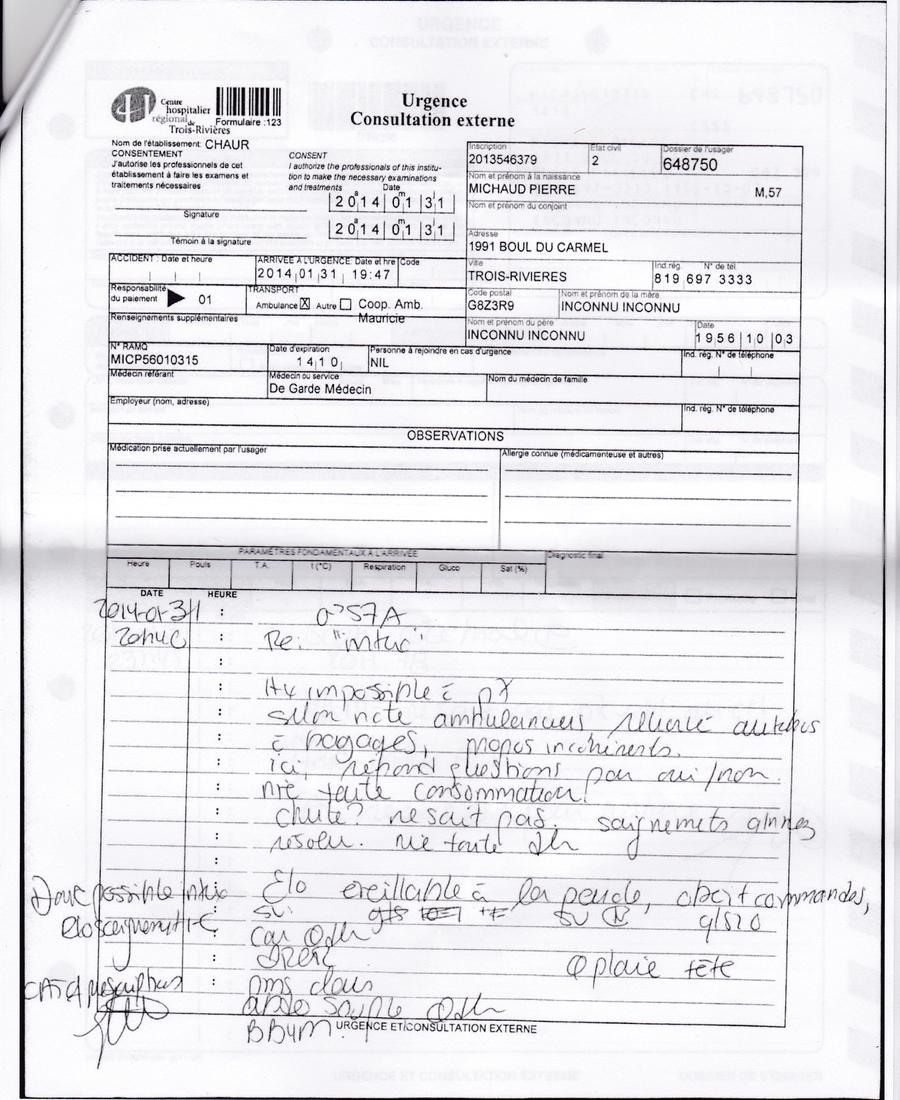 Centre
hospitalier
régional de
Trois-Rivières
Formulaire :123
Urgence
Consultation externe
Nom de l'établissement: CHAUR
CONSENTEMENT
J'autorise les professionnels de cet
établissement à faire les examens et
traitements nécessaires
CONSENT
I authorize the professionals of this institu-
tion to make the necessary examinations
and treatments
Date
2014 01 31
Signature
2014 01 31
Témoin à la signature
Inscription
2013546379
État civil
2
Dossier de l'usager
648750
Nom et prénom à la naissance
MICHAUD PIERRE M,57
Nom et prénom du conjoint
Adresse
1991 BOUL DU CARMEL
Ville
TROIS-RIVIERES
Ind.rég. N° de tél.
819 697 3333
Code postal
G8Z3R9
Nom et prénom de la mère
INCONNU INCONNU
Nom et prénom du père
INCONNU INCONNU
Date
1956 10 03
ACCIDENT : Date et heure
ARRIVÉE À L'URGENCE: Date et hre
2014 01 31 19:47
Code
Responsabilité
du paiement
01
TRANSPORT
Ambulance X Autre Coop. Amb.
Mauricie
Renseignements supplémentaires
N° RAMQ
MICP56010315
Date d'expiration
1410
Personne à rejoindre en cas d'urgence
NIL
Ind. rég. N° de téléphone
Médecin référant
Médecin ou service
De Garde Médecin
Nom du médecin de famille
Employeur (nom, adresse)
Ind. rég. N° de téléphone
OBSERVATIONS
Médication prise actuellement par l'usager
Allergie connue (médicamenteuse et autres)
PARAMÈTRES FONDAMENTAUX À L'ARRIVÉE
Diagnostic final
Heure Pouls T.A. t (°C) Respiration Gluco Sat (%)
DATE HEURE
2014-01-31 : 57A
Re: "intox"
Hx impossible
selon note ambulanciers autobus
bagages, propos incohérents.
ici, répond questions par oui/non.
nie toute consommation
chute? ne sait pas. saignements
résolu. nie toute
Donc possible intox
éveillable à la parole, commandes,
plaie tête
URGENCE ET CONSULTATION EXTERNE